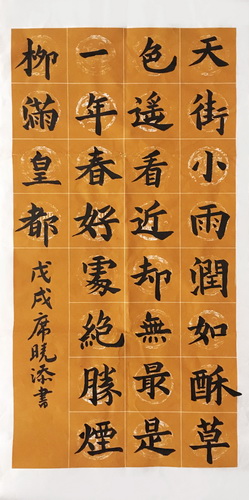 天街小雨潤如酥草
色遥看近却無最是
一年春好處絶勝煙
柳滿皇都
戊戌席晓添書